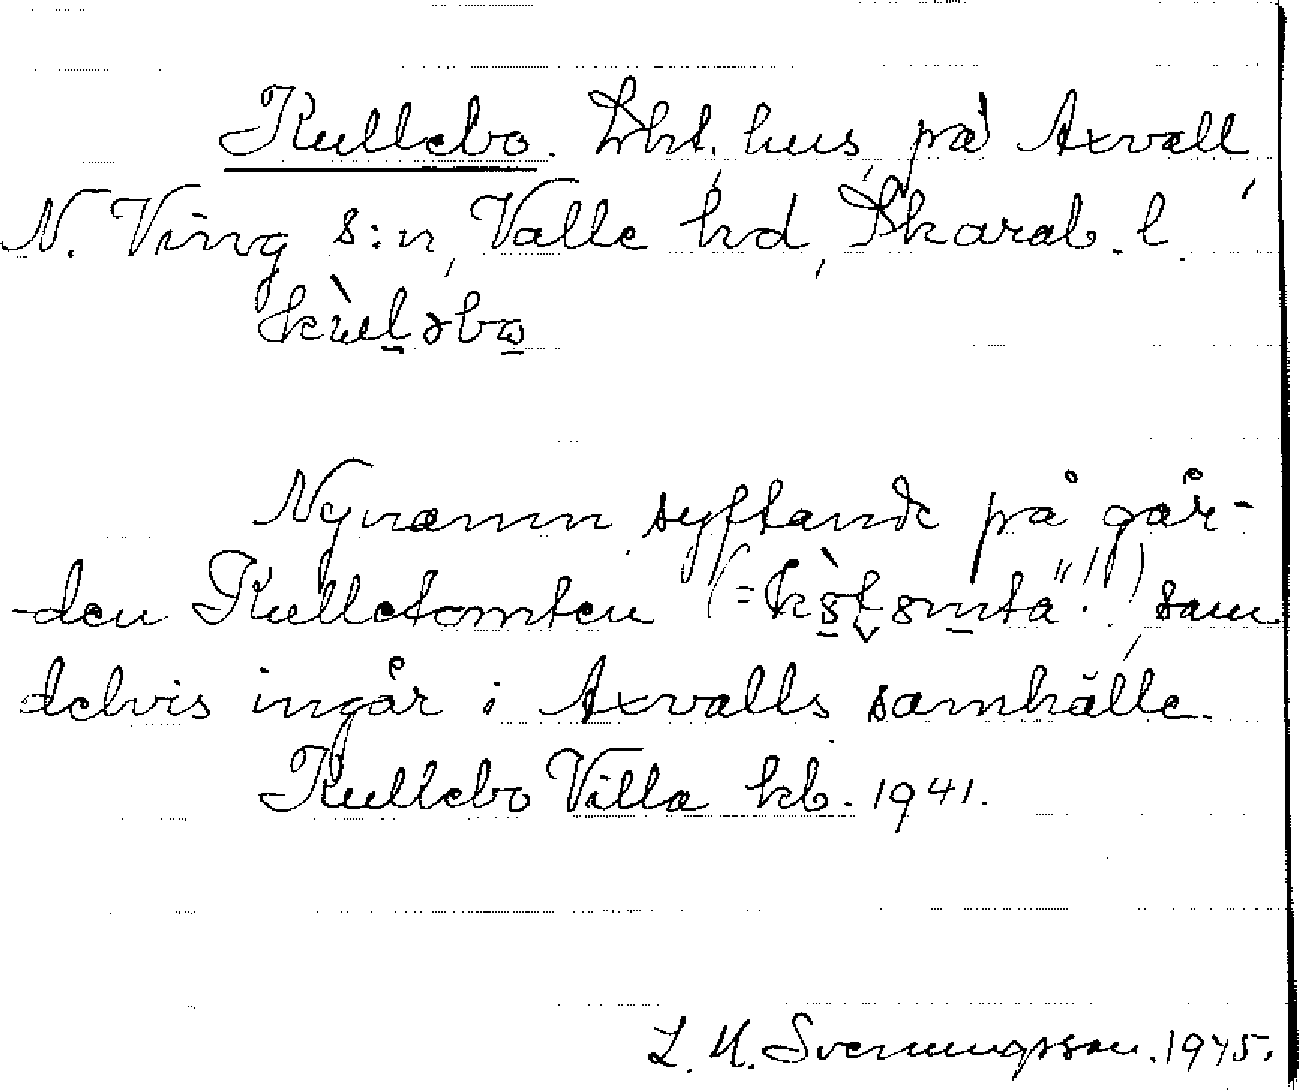 Kullebo. Lht, hus, på Axvall,
N. Ving s:n, Valle hd, Skarab. l.
kùl̠əbω̠
Nynamn syftande på går-
den Kulletomten (= "ko̠mta"!), som
delvis ingår i Axvalls samhälle.
Kullebo Villa kb. 1941.
L. M. Svenungsson. 1945.